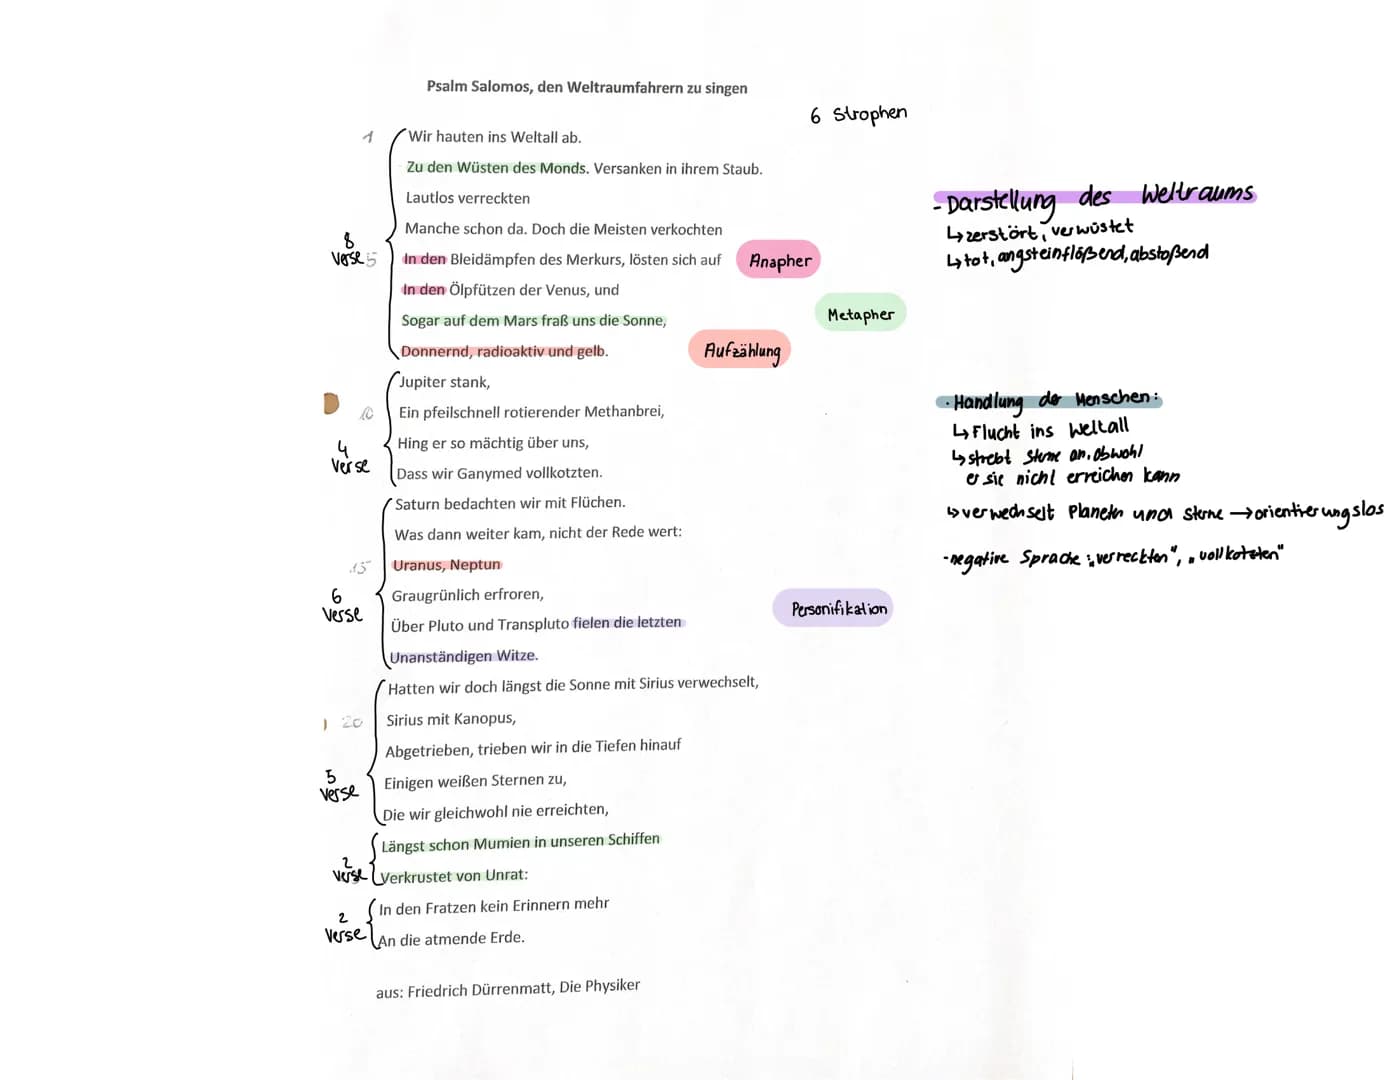 Psalm Salomos, den Weltraumfahrern zu singen
6 Strophen
1
Wir hauten ins Weltall ab.
Zu den Wüsten des Monds. Versanken in ihrem Staub.
Lautlos verreckten
Manche schon da. Doch die Meisten verkochten
8
Verse
5
In den Bleidämpfen des Merkurs, lösten sich auf
In den Ölpfützen der Venus, und
Sogar auf dem Mars fraß uns die Sonne,
Donnernd, radioaktiv und gelb.
Anapher
Metapher
Aufzählung
- Darstellung des Weltraums
↳ zerstört, verwüstet
↳ tot, angsteinflößend, abstoßend
Jupiter stank,
10
Ein pfeilschnell rotierender Methanbrei,
4
Verse
Hing er so mächtig über uns,
Dass wir Ganymed vollkotzten.
· Handlung der Menschen:
↳ Flucht ins Weltall
↳ strebt Sterne an, obwohl
er sie nicht erreichen kann
↳ verwechselt Planeten und Sterne → orientierungslos
- negative Sprache: „verreckten", „vollkotzten"
Saturn bedachten wir mit Flüchen.
Was dann weiter kam, nicht der Rede wert:
15
Uranus, Neptun
6
Verse
Graugrünlich erfroren,
Über Pluto und Transpluto fielen die letzten
Unanständigen Witze.
Personifikation
Hatten wir doch längst die Sonne mit Sirius verwechselt,
20
Sirius mit Kanopus,
Abgetrieben, trieben wir in die Tiefen hinauf
5
Verse
Einigen weißen Sternen zu,
Die wir gleichwohl nie erreichten,
2
Verse
Längst schon Mumien in unseren Schiffen
Verkrustet von Unrat:
2
Verse
In den Fratzen kein Erinnern mehr
An die atmende Erde.
aus: Friedrich Dürrenmatt, Die Physiker